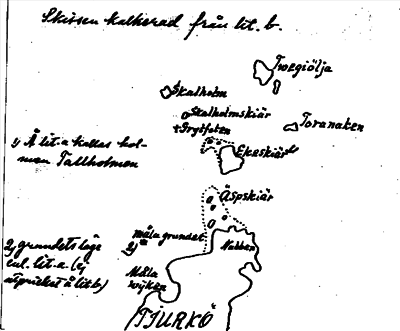 Skissen kalkerad från lit. b.
Twegiölja
Skalholm
Skalholmskiär
+Grytfoten
Toranaken
1) Å lit. a kallas hol-
men Tallholmen
Ekeskiär
Äspskiär
måla grundet
2)
Nabben
2) grundets läge
enl. lit. a (ej
utpricket å lit. b)
Måla
wijken
TJURKÖ